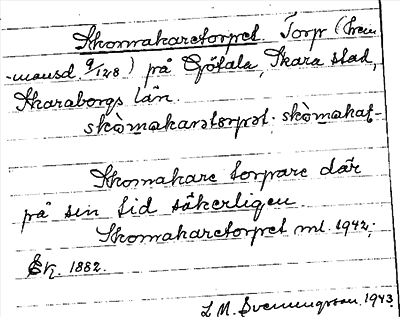 Skomakaretorpet Torp (Frem-
-mansd. 9/128) på Götala, Skara stad,
Skaraborgs län.
skòmakarətorpət. skòmakat-
Skomakare torpare där
på sin tid säkerligen
Skomakaretorpet ml. 1942;
Ek. 1882.
L M. Svenungsson. 1943